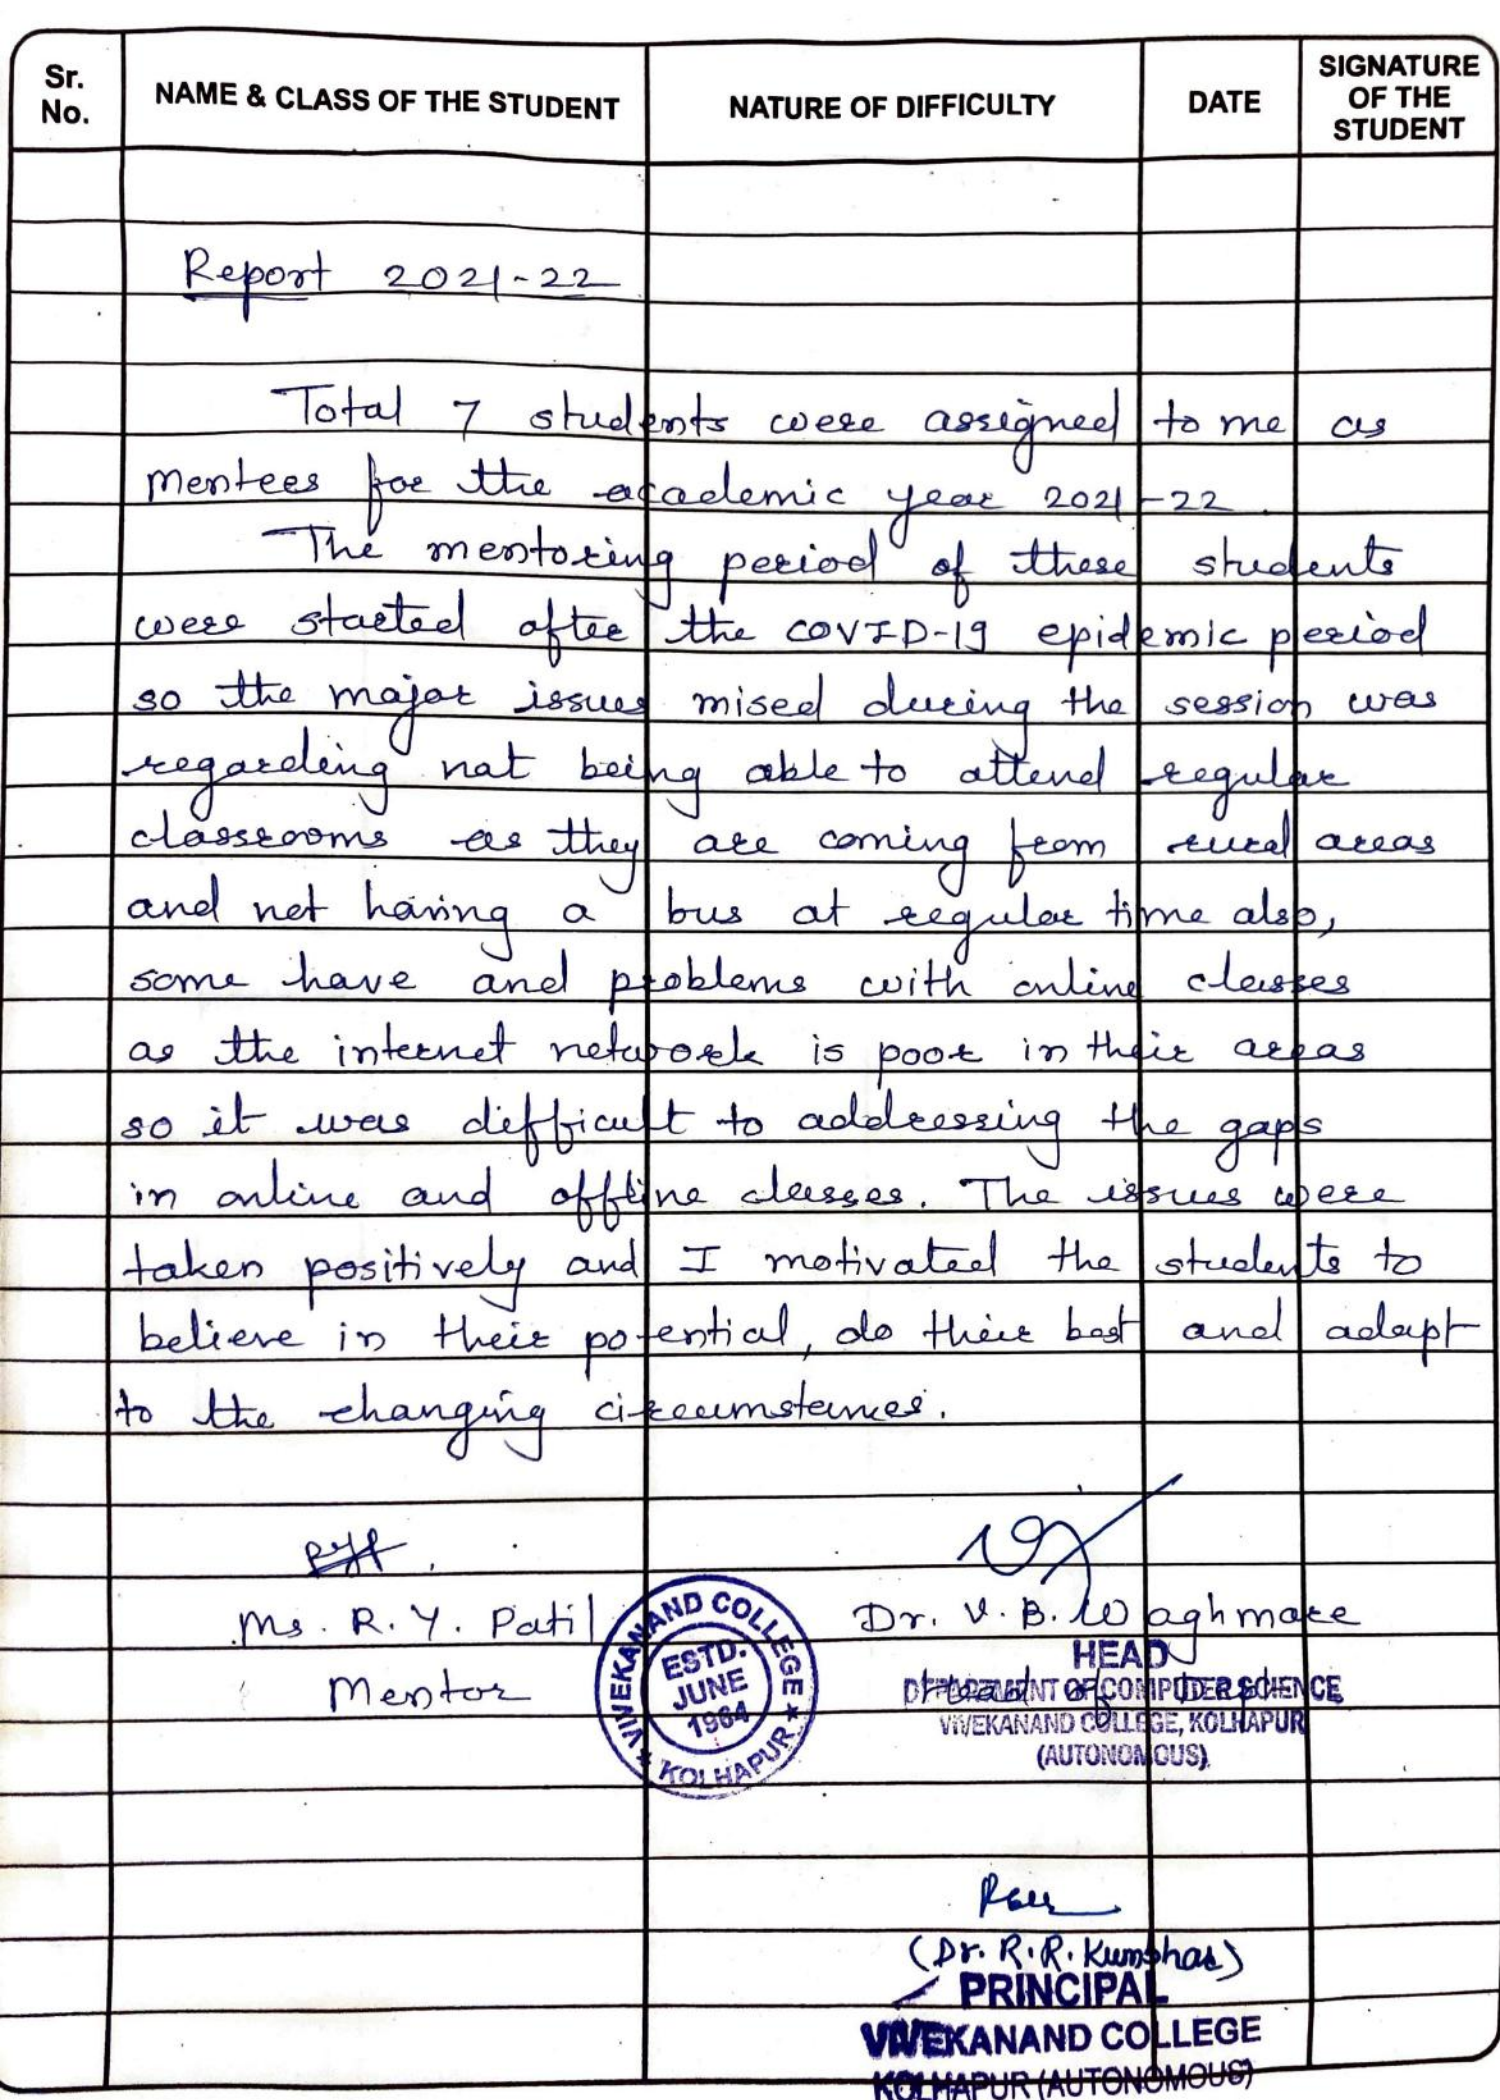 Sr. No.
NAME & CLASS OF THE STUDENT
NATURE OF DIFFICULTY
DATE
SIGNATURE OF THE STUDENT
Report 2021-22
Total 7 students were assigned to me as
mentees for the academic year 2021-22
The mentoring period of these students
were started after the COVID-19 epidemic period
so the major issues mised during the session was
regarding not being able to attend regular
classrooms as they are coming from rural areas
and not having a bus at regular time also,
some have and problems with online classes
as the internet network is poor in their areas
so it was difficult to addressing the gaps
in online and offline classes. The issues were
taken positively and I motivated the students to
believe in their potential, do their best and adapt
to the changing circumstances.
Ms. R. Y. Patil
Mentor
VIVEKANAND COLLEGE
ESTD. JUNE 1964
KOLHAPUR
Dr. V. B. Waghmare
HEAD
DEPARTMENT OF COMPUTER SCIENCE
VIVEKANAND COLLEGE, KOLHAPUR
(AUTONOMOUS)
(Dr. R. R. Kumbhar)
PRINCIPAL
VIVEKANAND COLLEGE
KOLHAPUR (AUTONOMOUS)